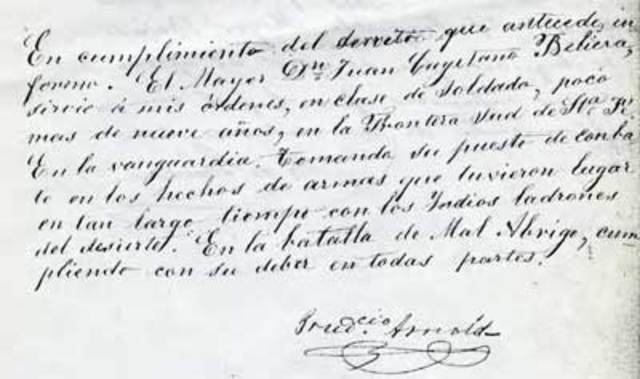 En cumplimiento del decreto que antecede, in
formo. El Mayor Dn Juan Cayetano Beliera,
sirvio á mis órdenes, en clase de soldado, poco
mas de nueve años, en la Frontera Sud de Sta Fe
En la vanguardia. Tomando su puesto de comba
te en los hechos de armas que tuvieron lugar
en tan largo tiempo con los Indios ladrones
del desierto. En la batalla de Mal Abrigo, cum
pliendo con su deber en todas partes.
Prudcio Arnold